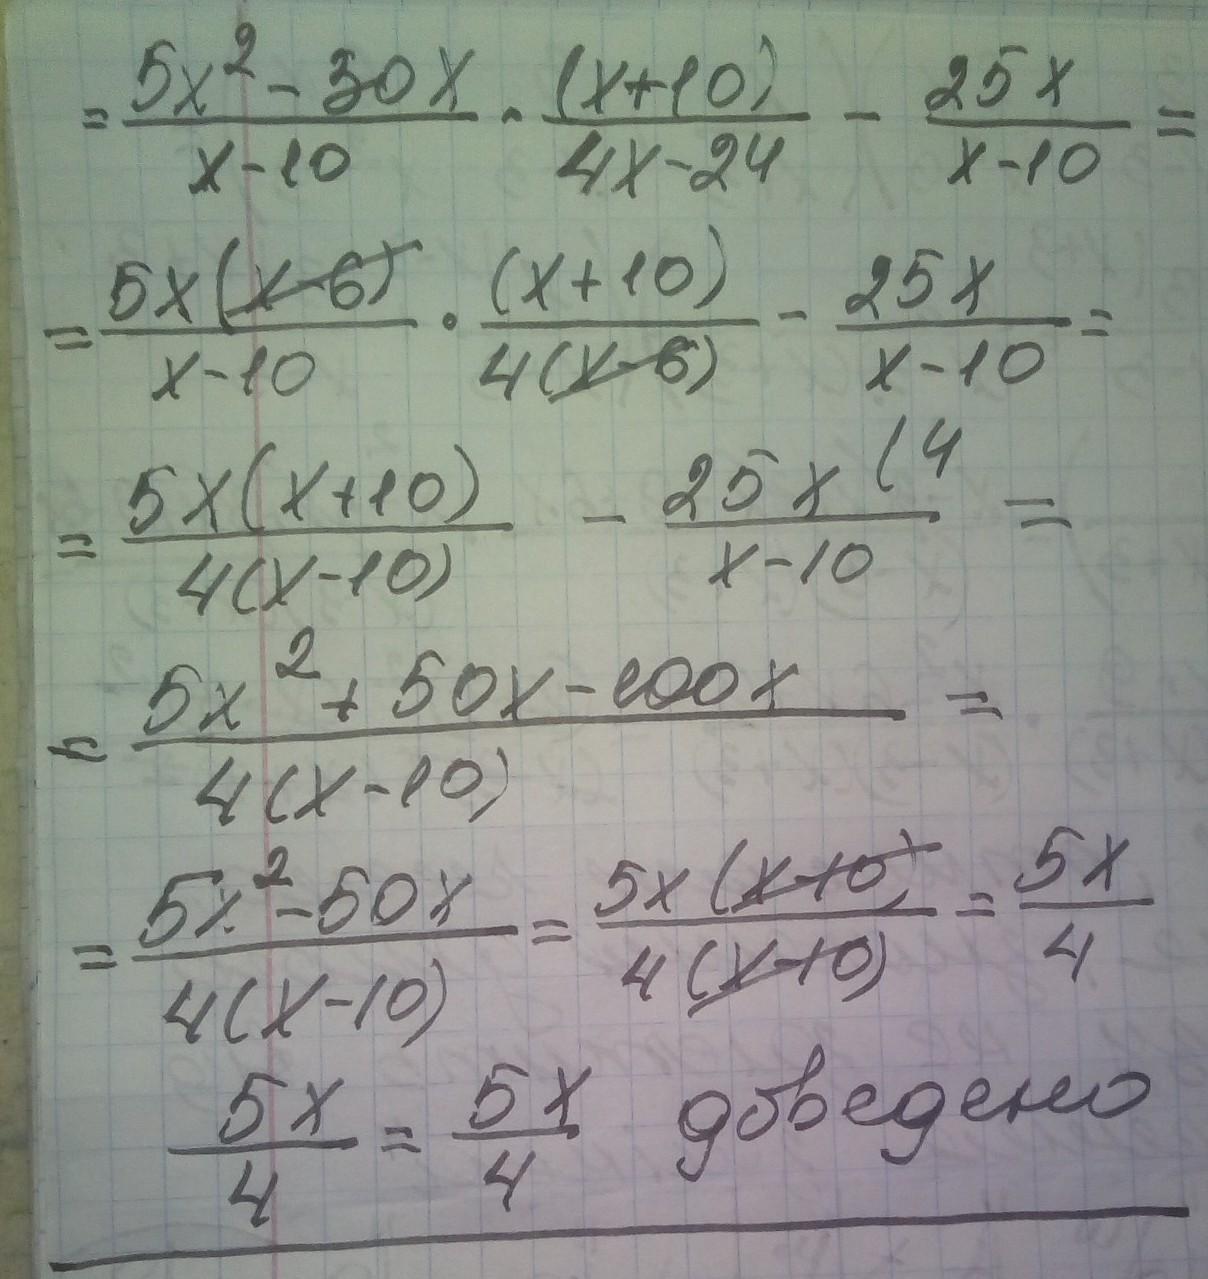 = (5x² - 30x)/(x - 10) · (x+10)/(4x - 24) - 25x/(x - 10) =
= 5x(x-6)/(x-10) · (x+10)/(4(x-6)) - 25x/(x-10) =
= 5x(x+10)/(4(x-10)) - 25x (4/(x-10) =
= (5x² + 50x - 100x)/(4(x-10)) =
= (5x² - 50x)/(4(x-10)) = 5x(x-10)/(4(x-10)) = 5x/4
5x/4 = 5x/4 доведено